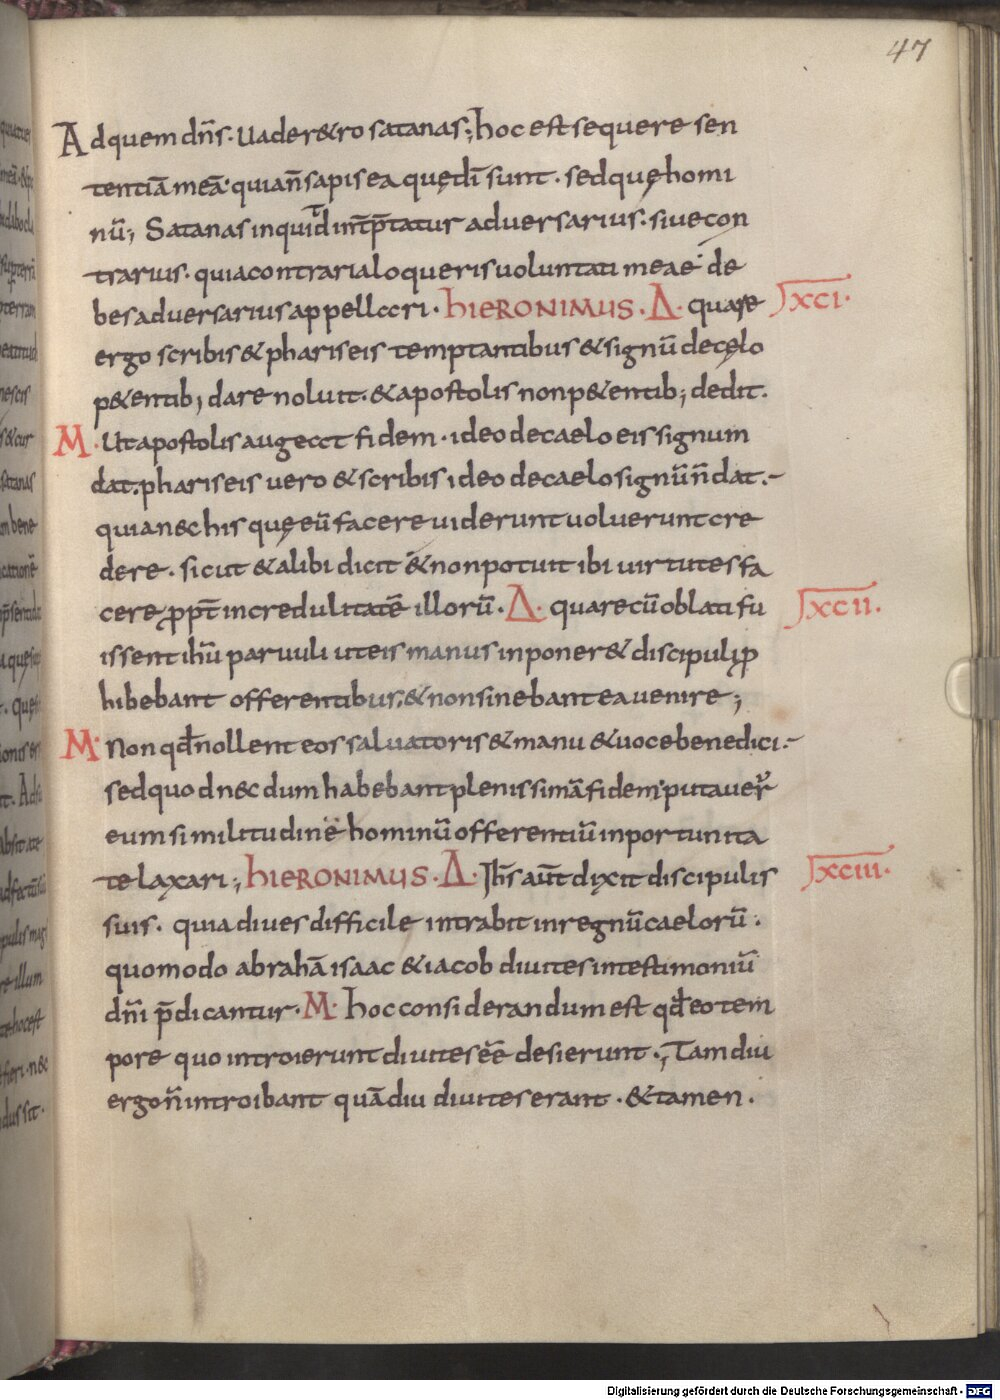 47
Ad quem dn̄s. Uade retro satanas; hoc est sequere sen
tentiā meā. quia n̄ sapis ea quę dī sunt. sed quę homi
nū; Satanas inquid int̄p̄tatur adversarius. sive con
trarius. quia contraria loqueris voluntati meae de
bes adversarius appellari. HIERONIMUS. Δ. quare LXCI.
ergo scribis & phariseis temptantibus & signū de cęlo
p&entib; dare noluit. & apostolis non p&entib; dedit.
M. Ut apostolis augeat fidem. ideo de caelo eis signum
dat. phariseis vero & scribis ideo de caelo signū n̄ dat.
quia nec his quę eū facere viderunt voluerunt cre
dere. sicut & alibi dicit & non potuit ibi virtutes fa
cere ꝓpt̄ incredulitatē illorū. Δ. quare cū oblati fu LXCII.
issent ihū parvuli ut eis manus inponer& discipuli ꝓ
hibebant offerentibus. & non sinebant ea venire;
M. Non qd̄ nollent eos salvatoris & manu & voce benedici.
sed quod necdum habebant plenissimā fidem putaver̄
eum similitudine hominū offerentiū inportunita
te laxari; HIERONIMUS. Δ. Ihs̄ aūt dixit discipulis LXCIII.
suis. quia dives difficile intrabit in regnū caelorū.
quomodo abrahā isaac & iacob divites in testimoniū
dn̄i p̄dicantur. M. hoc considerandum est qd̄ eo tem
pore quo introierunt divites eē desierunt; Tamdiu
ergo n̄ introibant quādiu divites erant. & tamen.
Digitalisierung gefördert durch die Deutsche Forschungsgemeinschaft - DFG